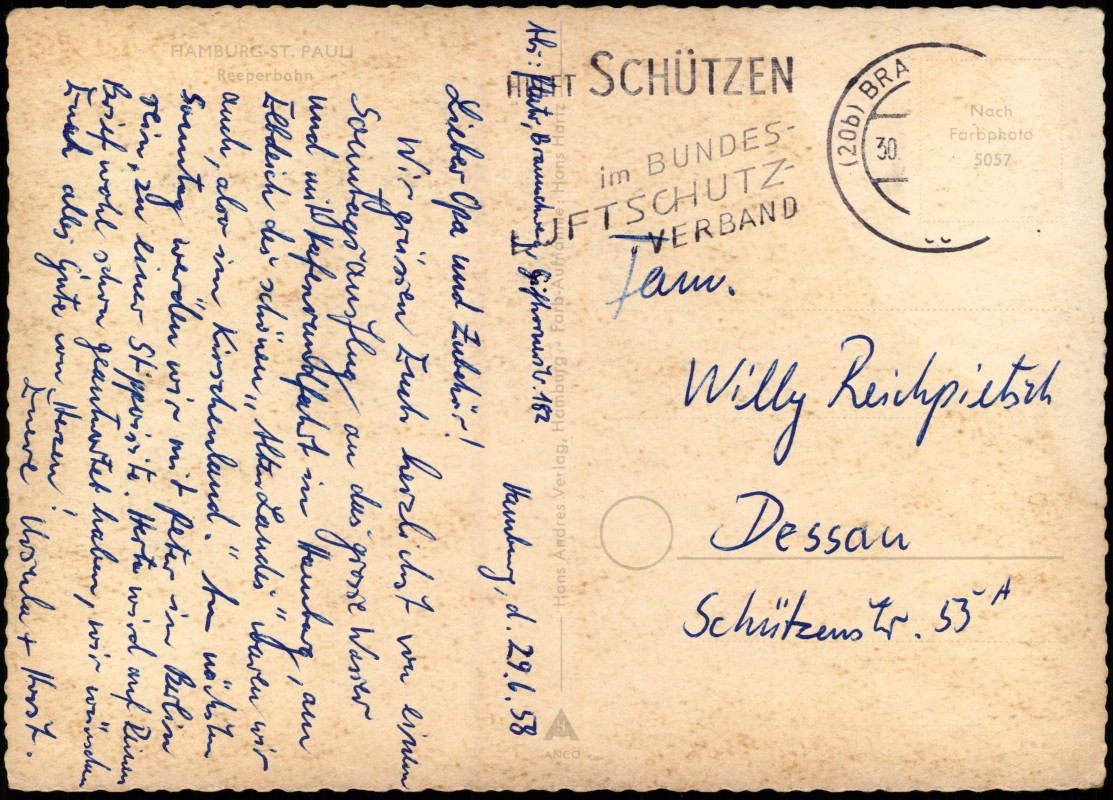 HAMBURG-ST. PAULI
Reeperbahn
Hamburg, d. 29.6.58
Lieber Opa und Zubehör!
Wir grüssen Euch herzlichst von einem
Sonntagsausflug an das grosse Wasser
und mit Hafenrundfahrt in Hamburg, am
Elbdeich des schönen "Alten Landes" waren wir
auch, also im Kirschenland." Am nächsten
Sonntag werden wir mit Peter in Berlin
sein, zu einer Stippvisite. Herta wird auf Deinen
Brief wohl schon geantwortet haben, wir wünschen
Euch alles Gute von Herzen!
Eure Ursula + Horst.
Abs.: Braunschweig, 182
Hans Andres Verlag, Hamburg • Farb-Aufnahme: Hans Hartz
ANCO
SCHÜTZEN
im BUNDES-
LUFTSCHUTZ-
VERBAND
(20b) BRA
30.
Nach
Farbphoto
5057
Fam.
Willy Reichpietsch
Dessau
Schützenstr. 55 A